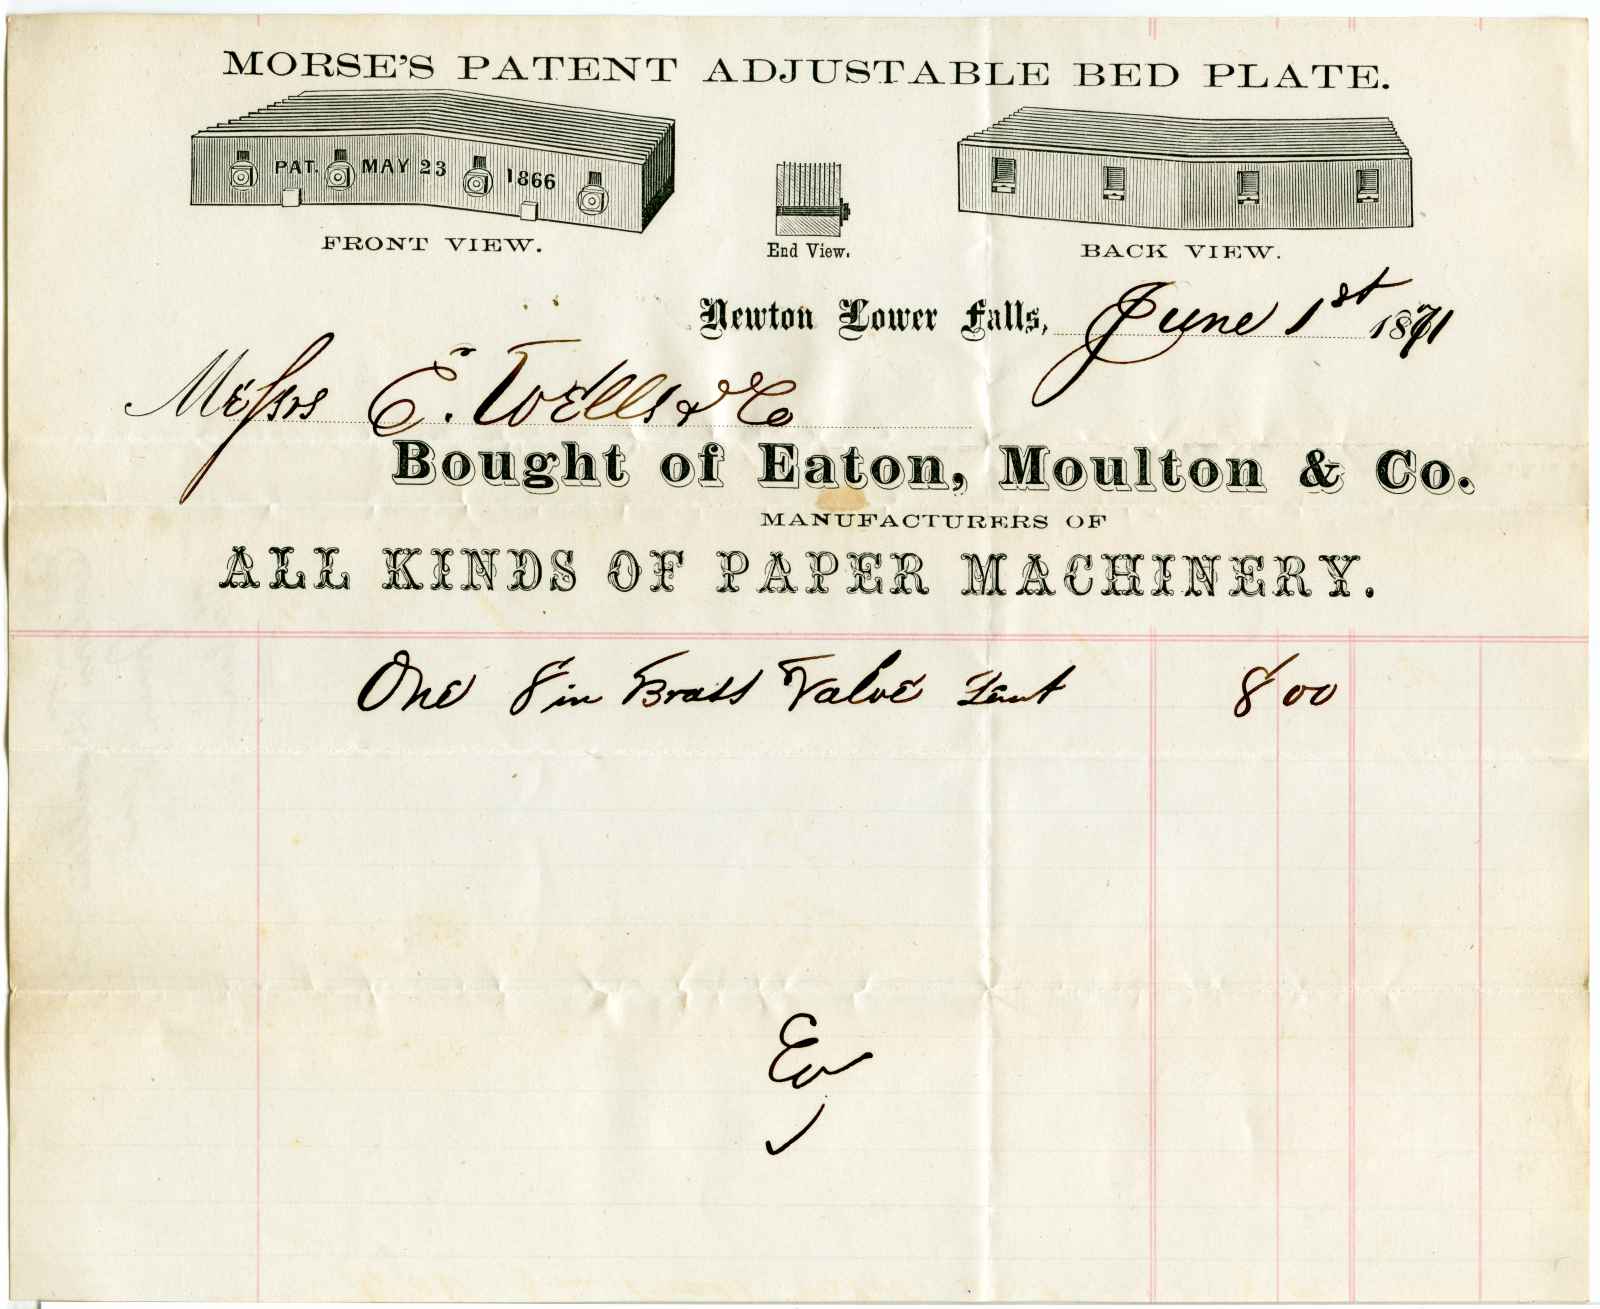 MORSE'S PATENT ADJUSTABLE BED PLATE.
PAT. MAY 23 1866
FRONT VIEW.
End View.
BACK VIEW.
Newton Lower Falls, June 1st 1871
Messrs E. Wells & Co
Bought of Eaton, Moulton & Co.
MANUFACTURERS OF
ALL KINDS OF PAPER MACHINERY.
One 8 in Brass Valve 8 00